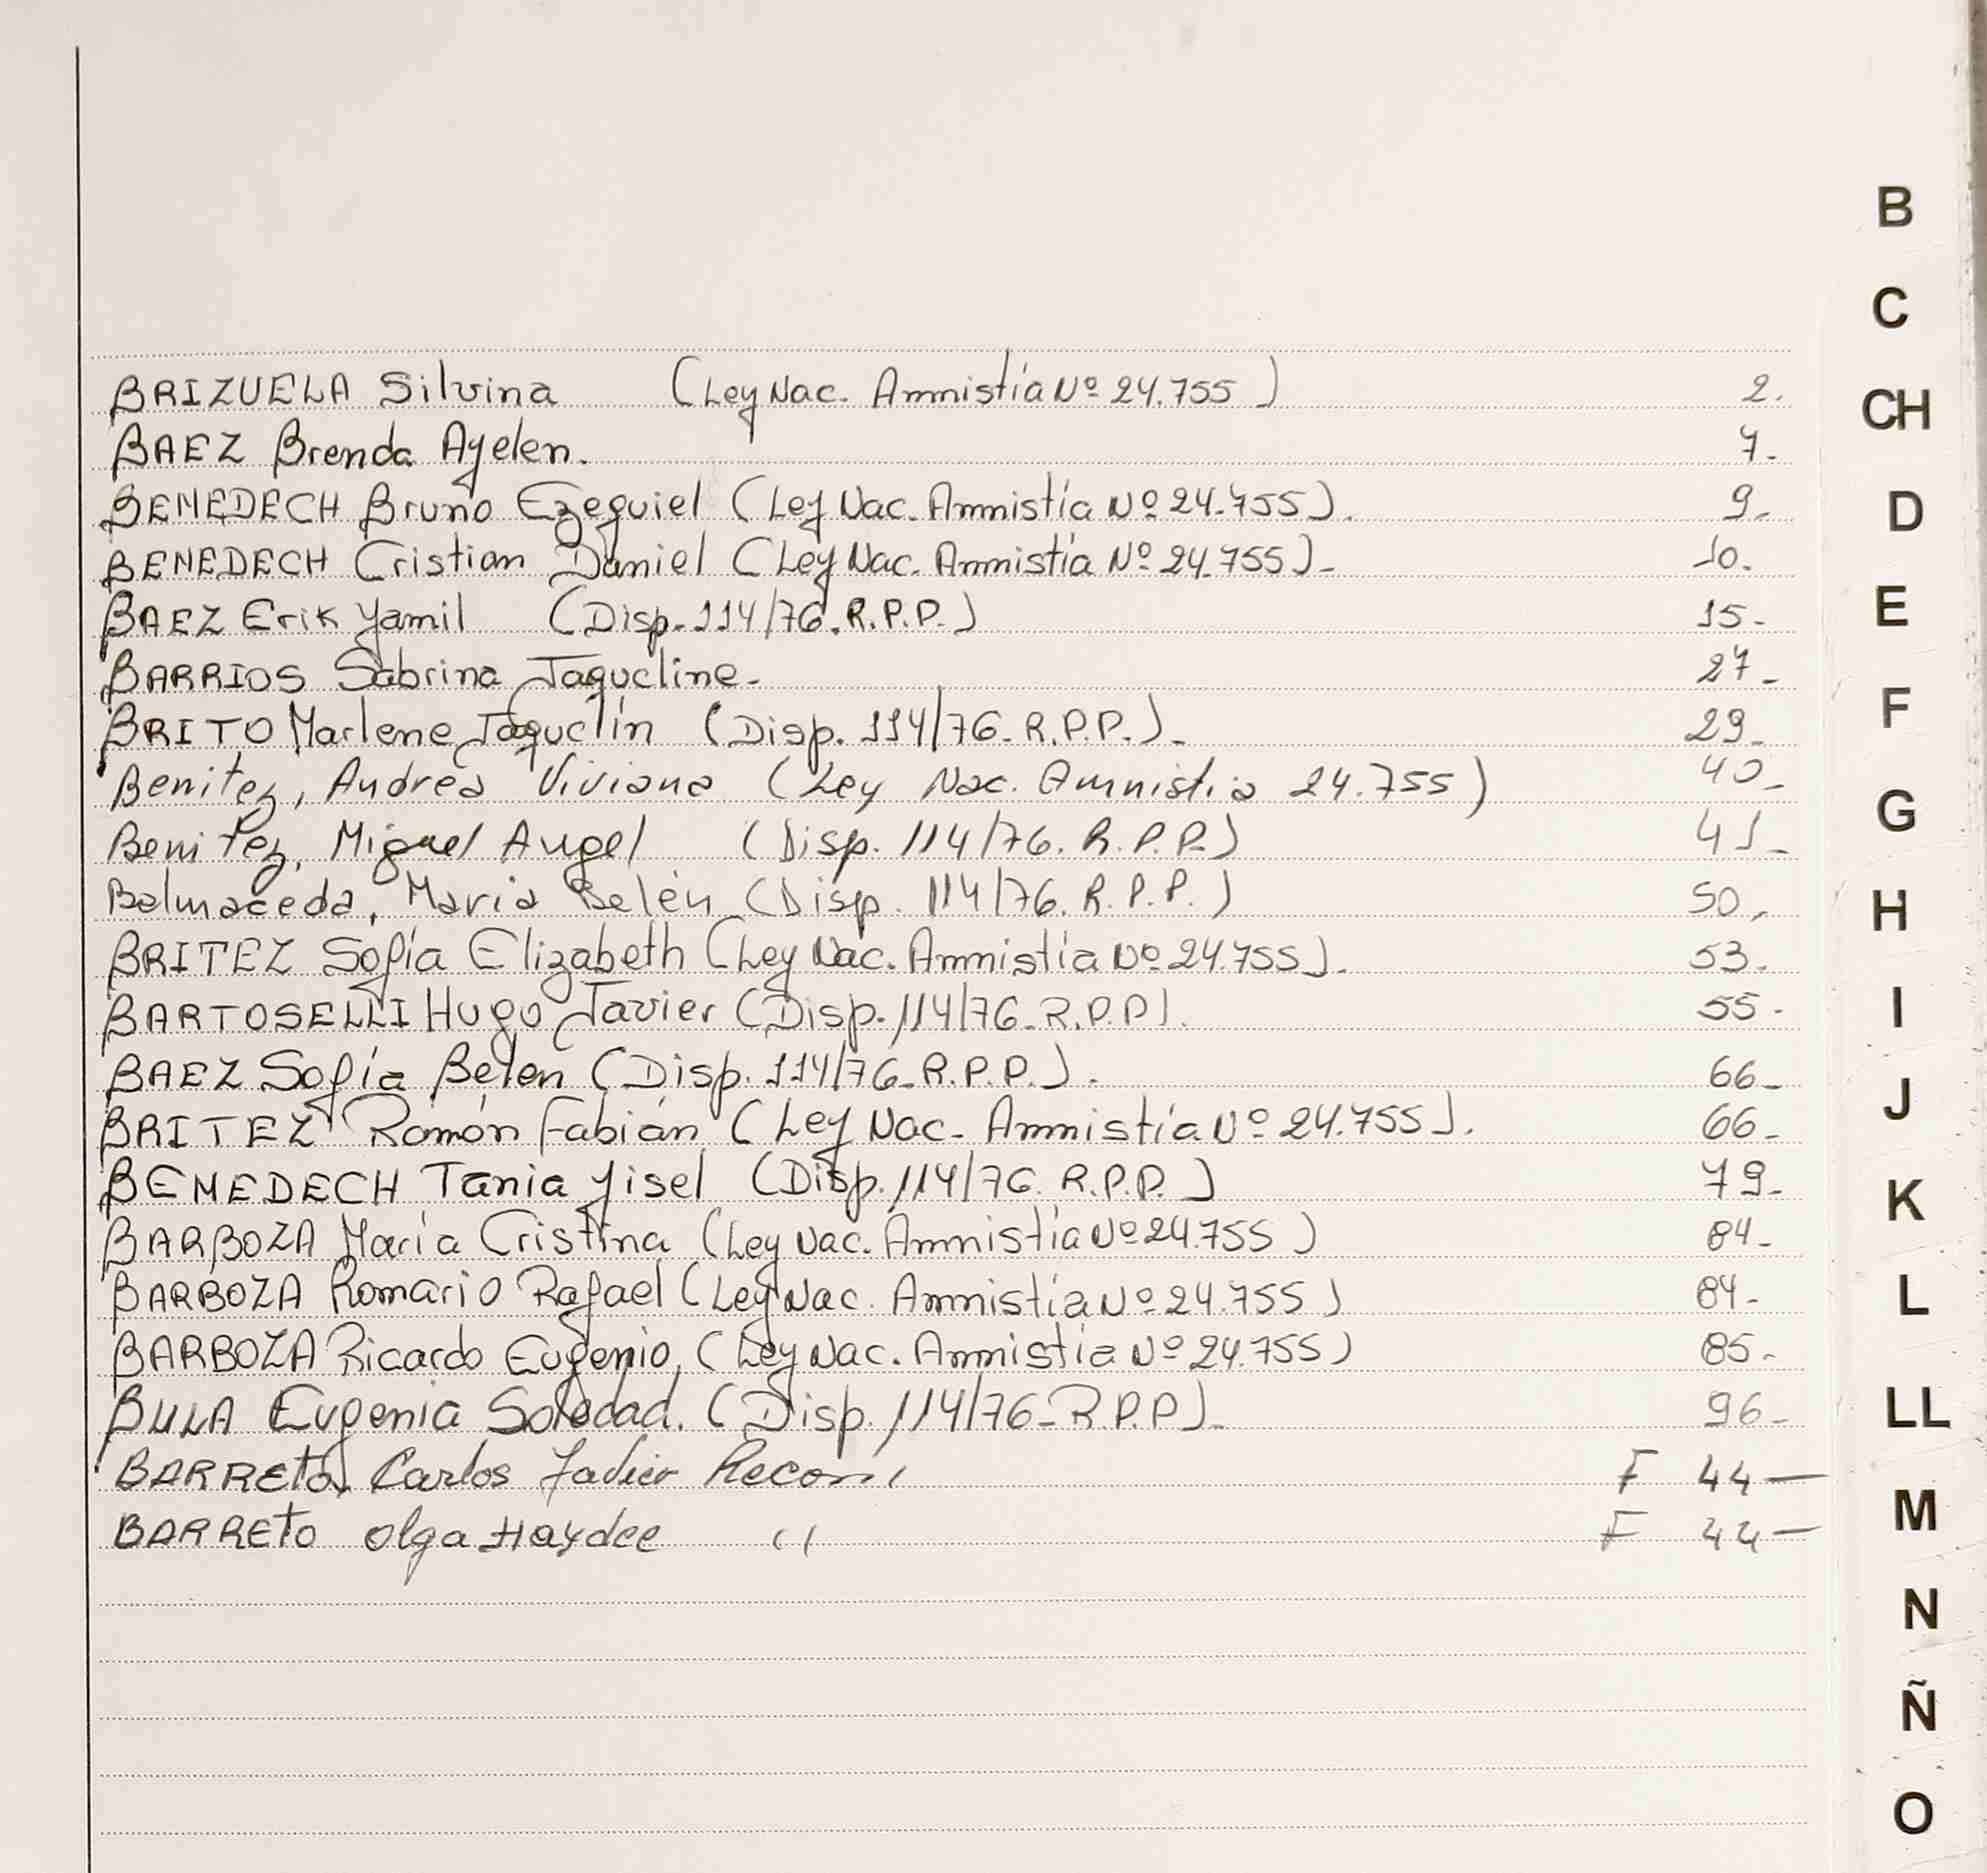 BRIZUELA Silvina (Ley Nac. Amnistía Nº 24.755) 2.
BAEZ Brenda Ayelen. 7-
BENEDECH Bruno Ezequiel (Ley Nac. Amnistía Nº 24.755). 9-
BENEDECH Cristian Daniel (Ley Nac. Amnistía Nº 24.755)- 10.
BAEZ Erik Yamil (Disp. 114/76. R.P.P.) 15-
BARRIOS Sabrina Jaqueline- 27-
BRITO Marlene Jaquelin (Disp. 114/76- R.P.P.)- 29-
Benitez, Andrea Viviana (Ley Nac. Amnistia 24.755) 40-
Benitez, Miguel Angel (Disp. 114/76. R.P.P.) 41-
Balmaceda, Maria Belén (Disp. 114/76. R.P.P.) 50-
BRITEZ Sofía Elizabeth (Ley Nac. Amnistía Nº 24.755). 53-
BARTOSELLI Hugo Javier (Disp. 114/76- R.P.P). 55-
BAEZ Sofía Belen (Disp. 114/76- R.P.P.). 66-
BRITEZ Ramón Fabián (Ley Nac- Amnistía Nº 24.755). 66-
BENEDECH Tania Yisel (Disp. 114/76. R.P.P.) 79-
BARBOZA María Cristina (Ley Nac. Amnistía Nº 24.755) 84-
BARBOZA Romario Rafael (Ley Nac. Amnistía Nº 24.755) 84-
BARBOZA Ricardo Eugenio (Ley Nac. Amnistía Nº 24.755) 85-
BULA Eugenia Soledad. (Disp. 114/76- R.P.P)- 96-
BARRETO Carlos Javier F 44—
BARRETO Olga Haydee " F 44—
B
C
CH
D
E
F
G
H
I
J
K
L
LL
M
N
Ñ
O